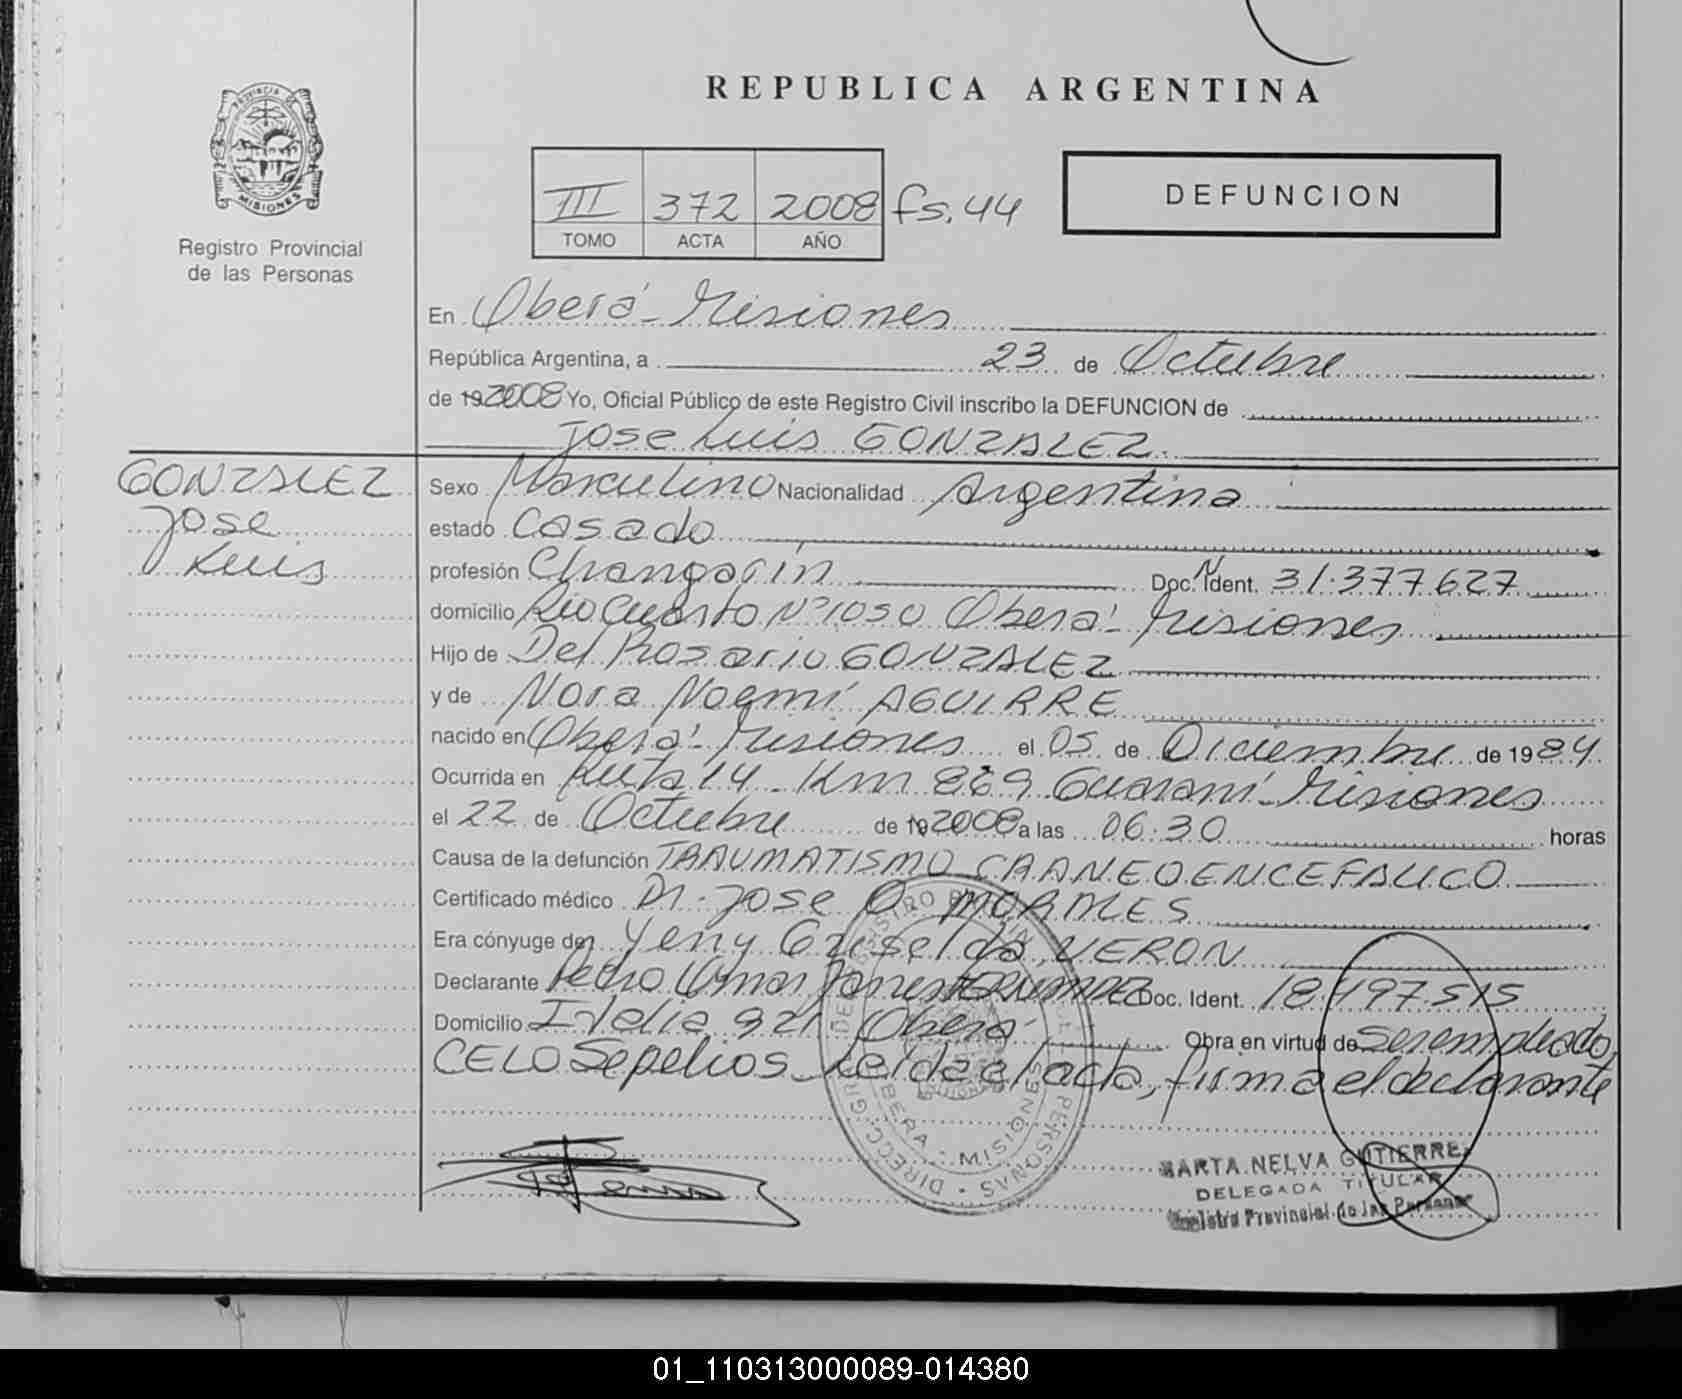 REPUBLICA ARGENTINA
PROVINCIA DE
MISIONES
Registro Provincial
de las Personas
III 372 2008 fs. 44
TOMO ACTA AÑO
DEFUNCION
En Oberá - Misiones
República Argentina, a 23 de Octubre
de 192008 Yo, Oficial Público de este Registro Civil inscribo la DEFUNCION de
Jose Luis GONZALEZ
GONZALEZ
Jose
Luis
Sexo Masculino Nacionalidad Argentina
estado Casado
profesión Changarín Doc. N Ident. 31.377.627
domicilio Rio Cuarto Nº 1050 Oberá - Misiones
Hijo de Del Rosario GONZALEZ
y de Nora Noemí AGUIRRE
nacido en Oberá - Misiones el 05 de Diciembre de 1984
Ocurrida en Ruta 14 - Km 869 Guaraní - Misiones
el 22 de Octubre de 192008 a las 06:30 horas
Causa de la defunción TRAUMATISMO CRANEOENCEFALICO
Certificado médico Dr. Jose O. MORALES
Era cónyuge de Yeny Griselda VERON
Declarante Pedro Omar Doc. Ident. 18.197.515
Domicilio 921 Oberá Obra en virtud de ser empleado,
CELO Sepelios. Leída el acta, firma el declarante
OBERA - MISIONES
PERSONAS
MARTA NELVA GUTIERREZ
DELEGADA TITULAR
Registro Provincial de las Personas
01_110313000089-014380